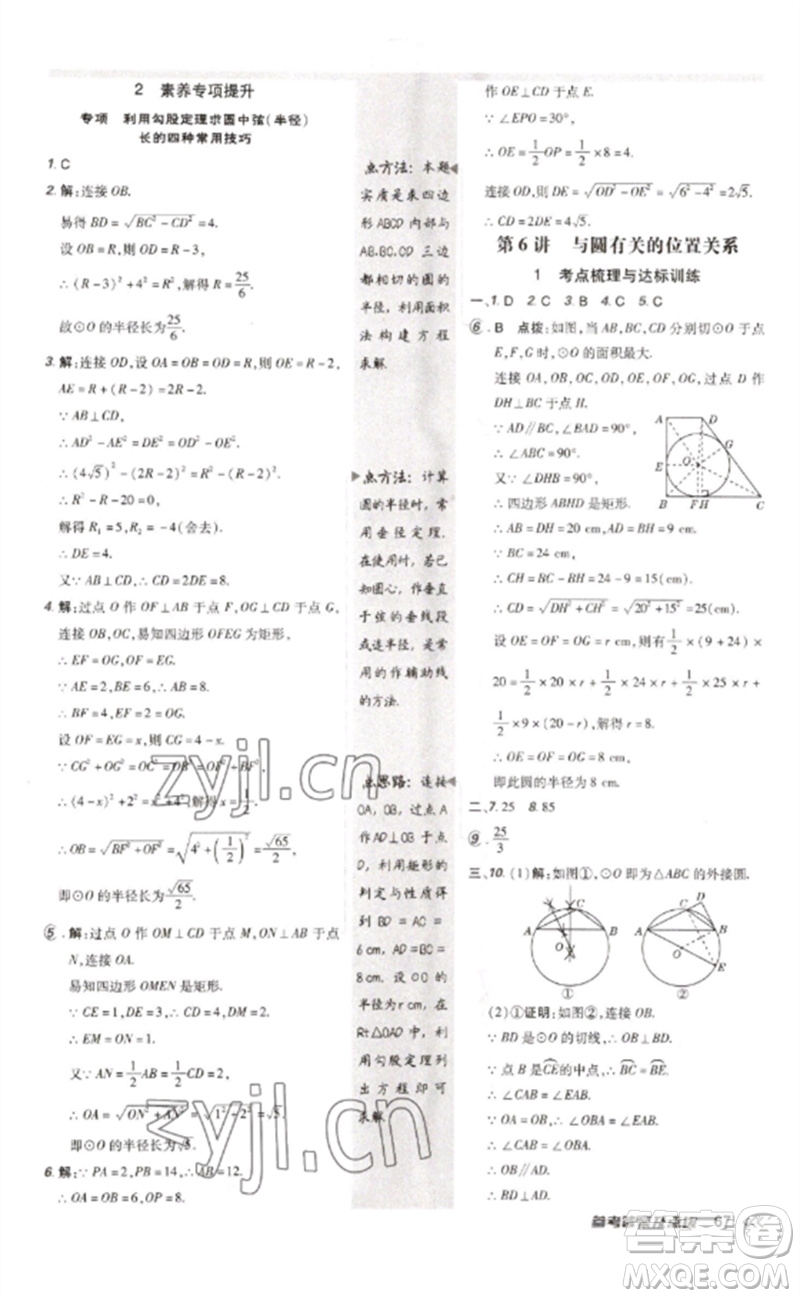 2 素养专项提升
专项 利用勾股定理求圆中弦(半径)
长的四种常用技巧
1. C
2. 解:连接 OB.
易得 BD=√(BC²-CD²)=4.
设 OB=OA=R,则 OD=R-3.
∴(R-3)²+4²=R²,解得 R=25/6.
故⊙O 的半径长为25/6.
3. 解:连接 OD,设 OA=OB=OD=R,则 OE=R-2,
AE=R+(R-2)=2R-2.
∵AB⊥CD,
∴AD²-AE²=DE²=OD²-OE².
∴(4√5)²-(2R-2)²=R²-(R-2)².
∴R²-R-20=0,
解得 R₁=5,R₂=-4(舍去).
∴DE=4.
又∵AB⊥CD,∴CD=2DE=8.
4. 解:过点 O 作 OF⊥AB 于点 F,OG⊥CD 于点 G,
连接 OB,OC,易知四边形 OFEG 为矩形,
∴EF=OG,OF=EG.
∵AE=2,BE=6,∴AB=8.
∴BF=4,EF=2=OG.
设 OF=EG=x,则 CG=4-x,
∵CG²+OG²=OC²=OB²=OF²+BF²,
∴(4-x)²+2²=x²+4²,解得 x=1/2.
∴OB=√(BF²+OF²)=√(4²+(1/2)²)=√65/2,
即⊙O 的半径长为√65/2.
⑤. 解:过点 O 作 OM⊥CD 于点 M,ON⊥AB 于点
N,连接 OA.
易知四边形 OMEN 是矩形.
∵CE=1,DE=3,∴CD=4,DM=2.
∴EM=1.∴ON=1.
又∵AN=1/2AB=1/2CD=2,
∴OA=√(ON²+AN²)=√(1²+2²)=√5,
即⊙O 的半径长为√5.
6. 解:∵PA=2,PB=14,∴AB=12.
∴OA=6,OP=OA+PA=8.
点方法:本题
实质是求四边
形ABCD内部与
AB,BC,CD三边
都相切的圆的
半径,利用面积
法构建方程
求解.
点方法:计算
圆的半径时,常
用垂径定理,
在使用时,若已
知圆心,作垂直
于弦的垂线段
或连半径,是常
用的作辅助线
的方法.
点思路:连接
OA,OB,过点A
作AD⊥OB于点
D,利用矩形的
判定与性质得
到 BD=AC=
6 cm,AD=BC=
8 cm.设 OC的
半径为r cm,在
Rt△OAD中,利
用勾股定理列
出方程即可
求解.
作 OE⊥CD 于点 E.
∵∠EPO=30°,
∴OE=1/2OP=1/2×8=4.
连接 OD,则 DE=√(OD²-OE²)=√(6²-4²)=2√5.
∴CD=2DE=4√5.
第 6 讲 与圆有关的位置关系
1 考点梳理与达标训练
一、1. D 2. C 3. B 4. C 5. C
⑥. B 点拨:如图,当 AB,BC,CD 分别切⊙O 于点
E,F,G 时,⊙O 的面积最大.
连接 OA,OB,OC,OD,OE,OF,OG,过点 D 作
DH⊥BC 于点 H.
∵AD∥BC,∠BAD=90°,
∴∠ABC=90°.
又∵∠DHB=90°,
∴四边形 ABHD 是矩形.
∴AB=DH=20 cm,AD=BH=9 cm.
∵BC=24 cm,
∴CH=BC-BH=24-9=15(cm).
∴CD=√(DH²+CH²)=√(20²+15²)=25(cm).
设 OE=OF=OG=r cm,则有1/2×(9+24)×
20=1/2×20×r+1/2×24×r+1/2×25×r+
1/2×9×(20-r),解得 r=8.
∴OE=OF=OG=8 cm,
即此圆的半径为 8 cm.
A D G E O B F H C
二、7. 25 8. 85
⑨. 25/3
三、10. (1)解:如图①,⊙O 即为△ABC 的外接圆.
C A B O ① C D A B O E ②
(2)①证明:如图②,连接 OB.
∵BD 是⊙O 的切线,∴OB⊥BD.
∵点 B 是CE的中点,∴BC=BE.
∴∠CAB=∠EAB.
∵OA=OB,∴∠OBA=∠EAB.
∴∠CAB=∠OBA.
∴OB∥AD.
67
zyjl.cn
zyjl.cn
答案圈
MXQE.COM